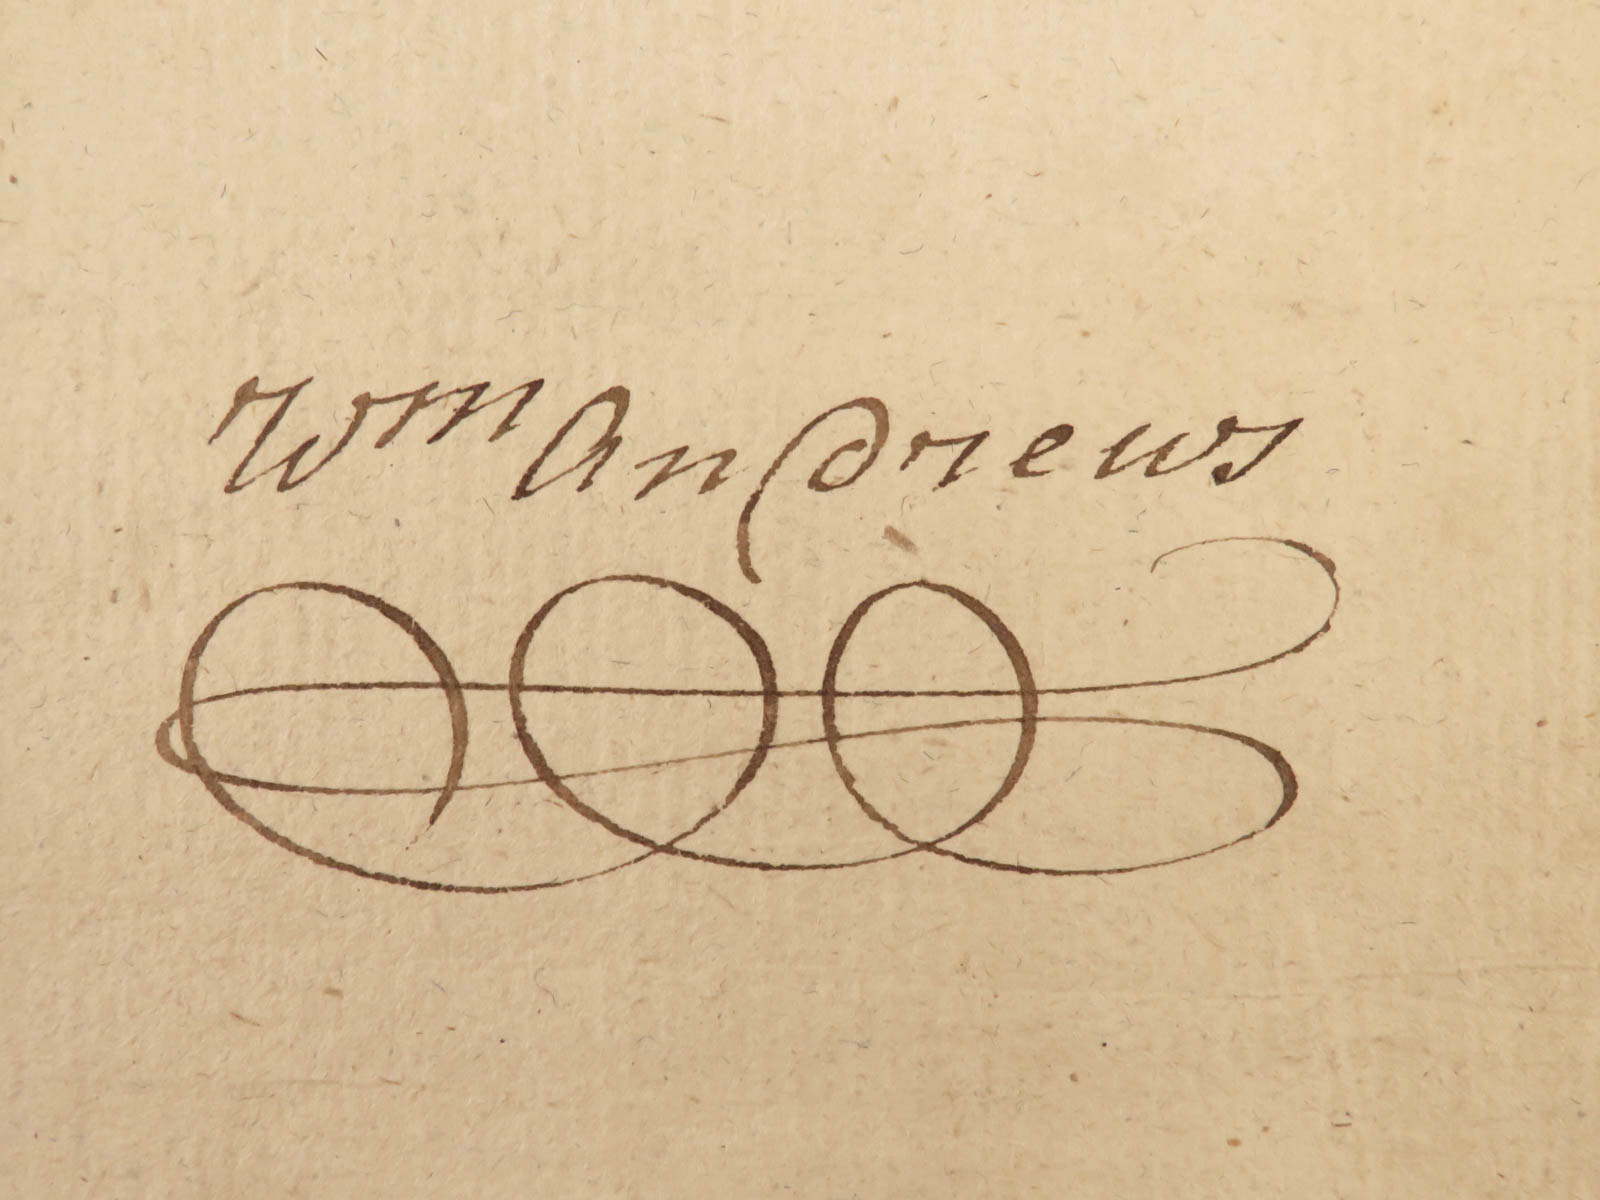 Wm Andrews